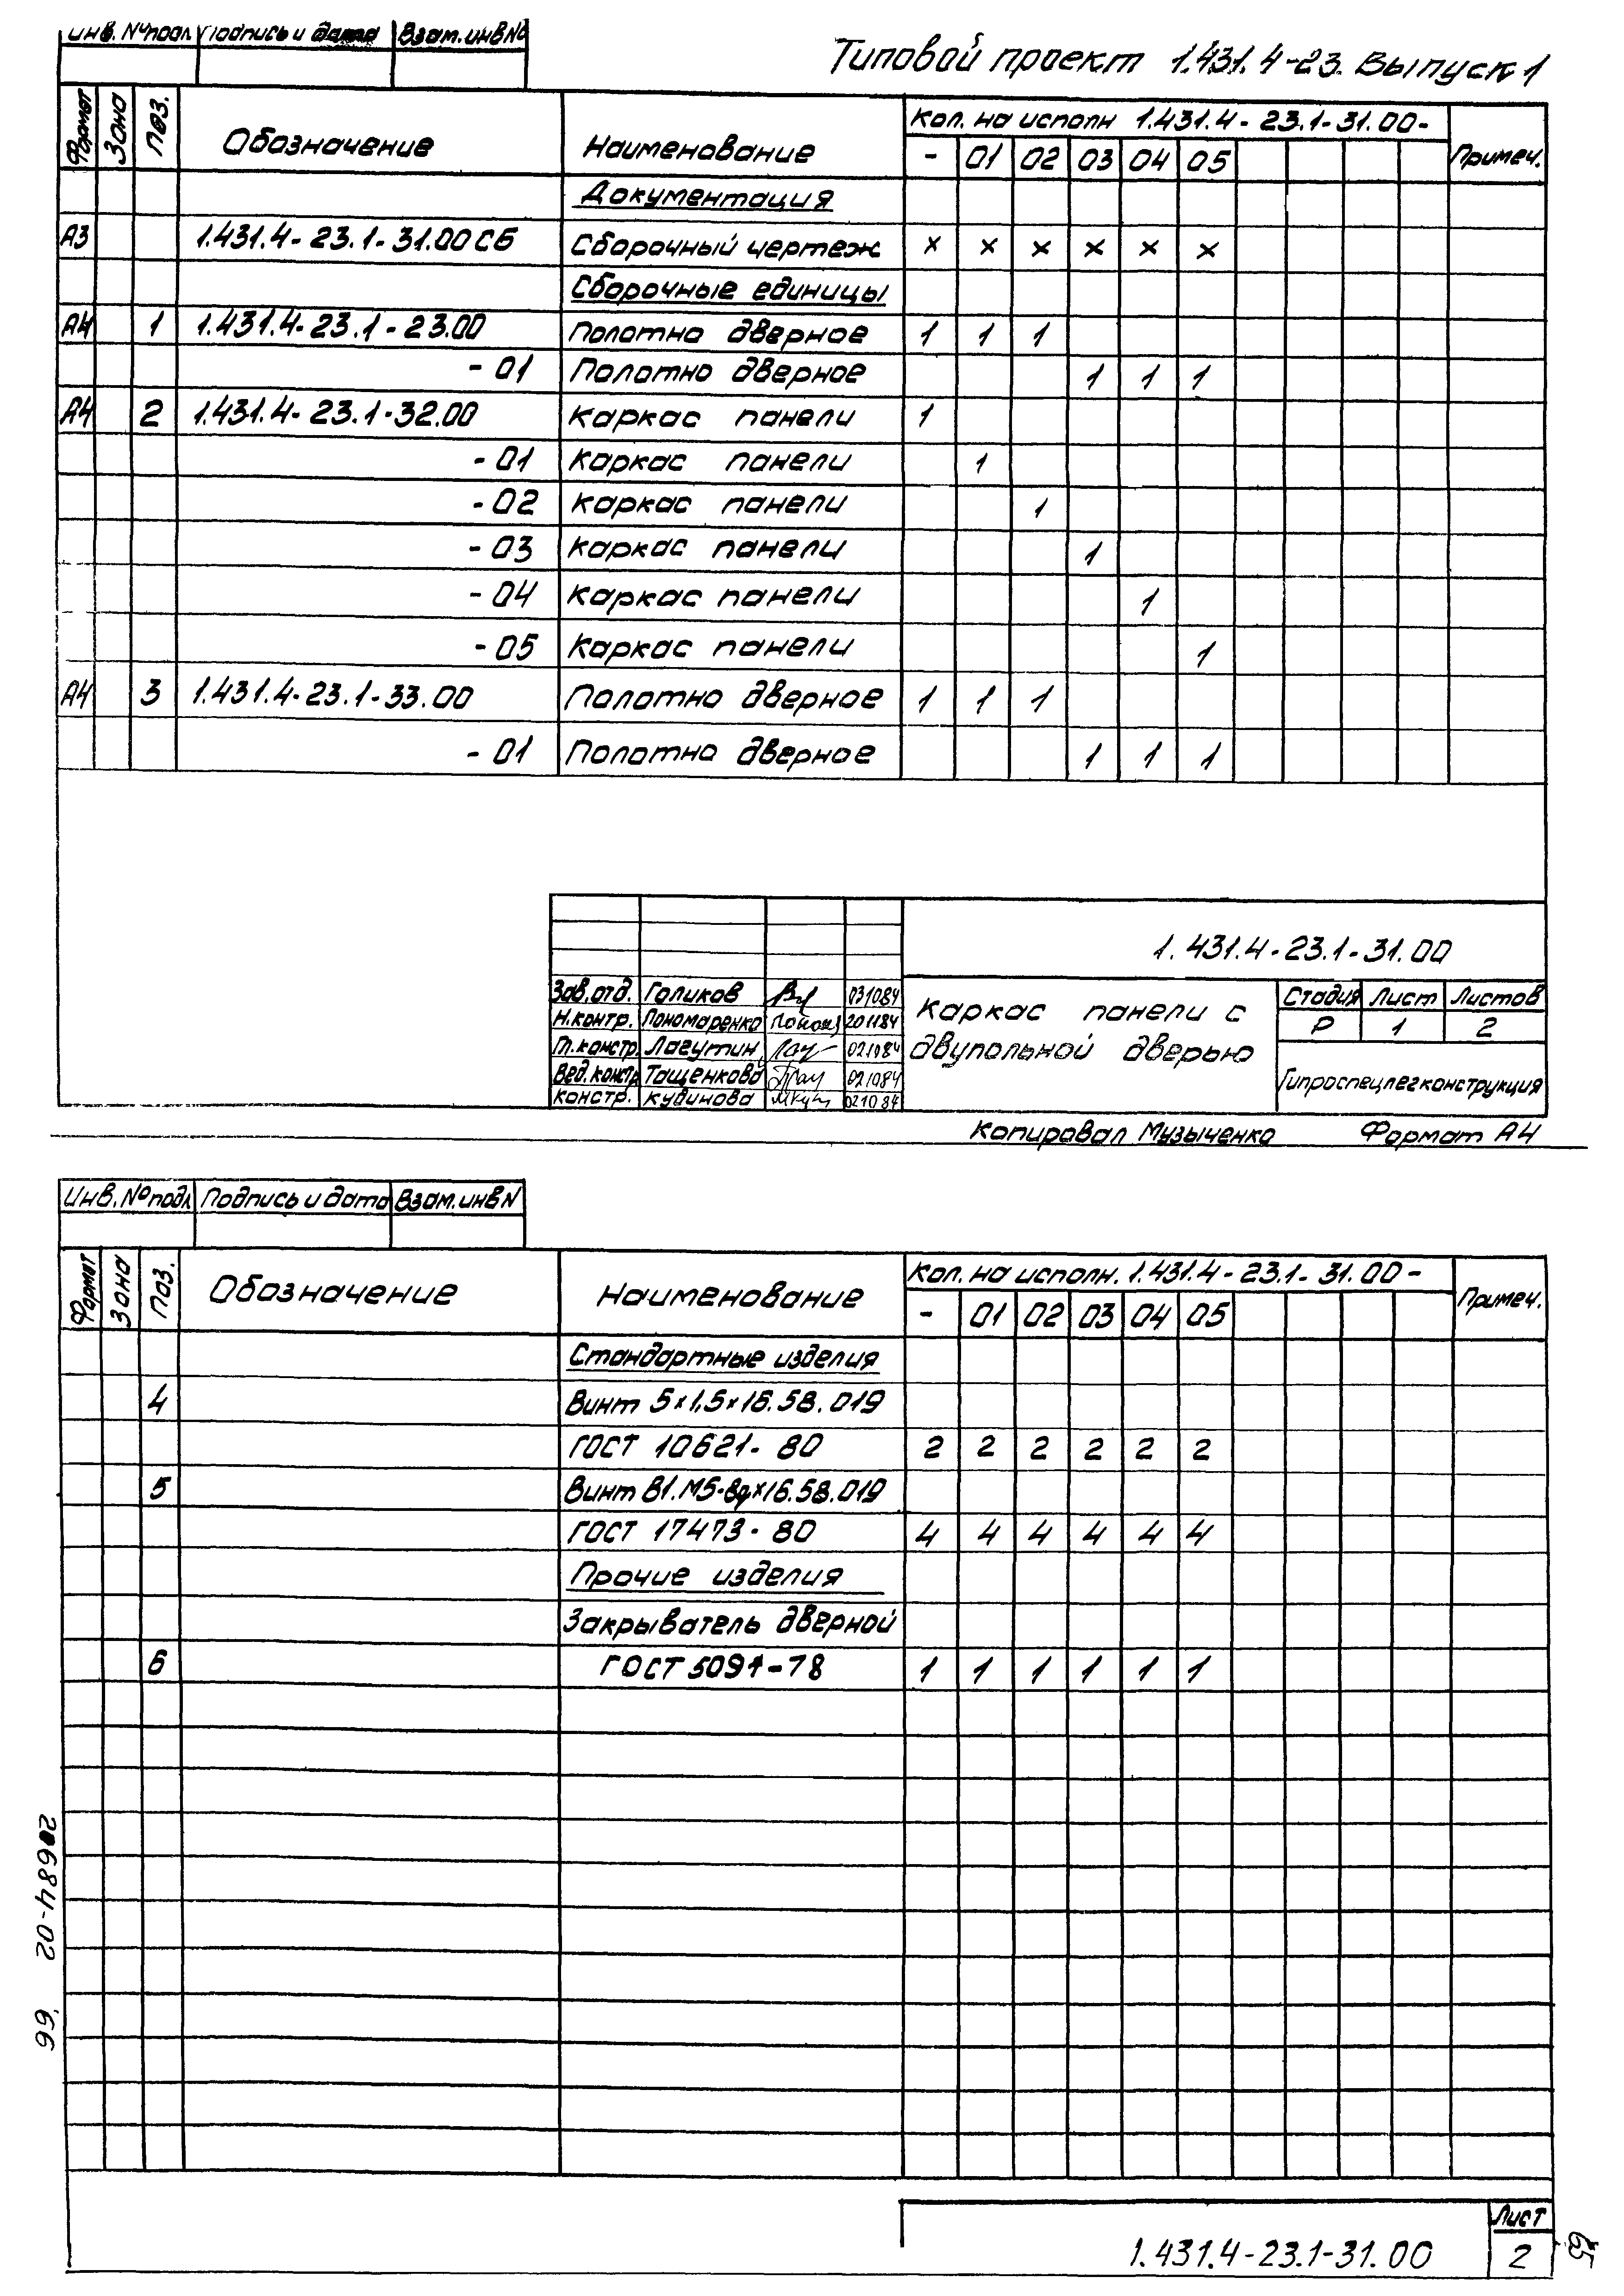 Инв. № подл. Подпись и дата Взам. инв №
Типовой проект 1.431.4-23. Выпуск 1
Формат Зона Поз. Обозначение Наименование Кол. на исполн 1.431.4-23.1-31.00- Примеч.
- 01 02 03 04 05
Документация
А3 1.431.4-23.1-31.00 СБ Сборочный чертеж х х х х х х
Сборочные единицы
А4 1 1.431.4-23.1-23.00 Полотно дверное 1 1 1
-01 Полотно дверное 1 1 1
А4 2 1.431.4-23.1-32.00 Каркас панели 1
-01 Каркас панели 1
-02 Каркас панели 1
-03 Каркас панели 1
-04 Каркас панели 1
-05 Каркас панели 1
А4 3 1.431.4-23.1-33.00 Полотно дверное 1 1 1
-01 Полотно дверное 1 1 1
1.431.4-23.1-31.00
Зав. отд. Голиков 031084
Н. контр. Пономаренко 201184
Гл. констр. Лагутин 021084
Вед. констр. Тащенкова 021084
Констр. Кудинова 021084
Каркас панели с
двупольной дверью
Стадия Лист Листов
Р 1 2
Гипроспецлегконструкция
Копировал Музыченко Формат А4
Инв. № подл Подпись и дата Взам. инв N
Формат Зона Поз. Обозначение Наименование Кол. на исполн. 1.431.4-23.1-31.00- Примеч.
- 01 02 03 04 05
Стандартные изделия
4 Винт 5х1,5х16.58.019
ГОСТ 10621-80 2 2 2 2 2 2
5 Винт В1.М5-8gх16.58.019
ГОСТ 17473-80 4 4 4 4 4 4
Прочие изделия
Закрыватель дверной
6 ГОСТ 5091-78 1 1 1 1 1 1
20684-02 66
1.431.4-23.1-31.00
Лист
2
65